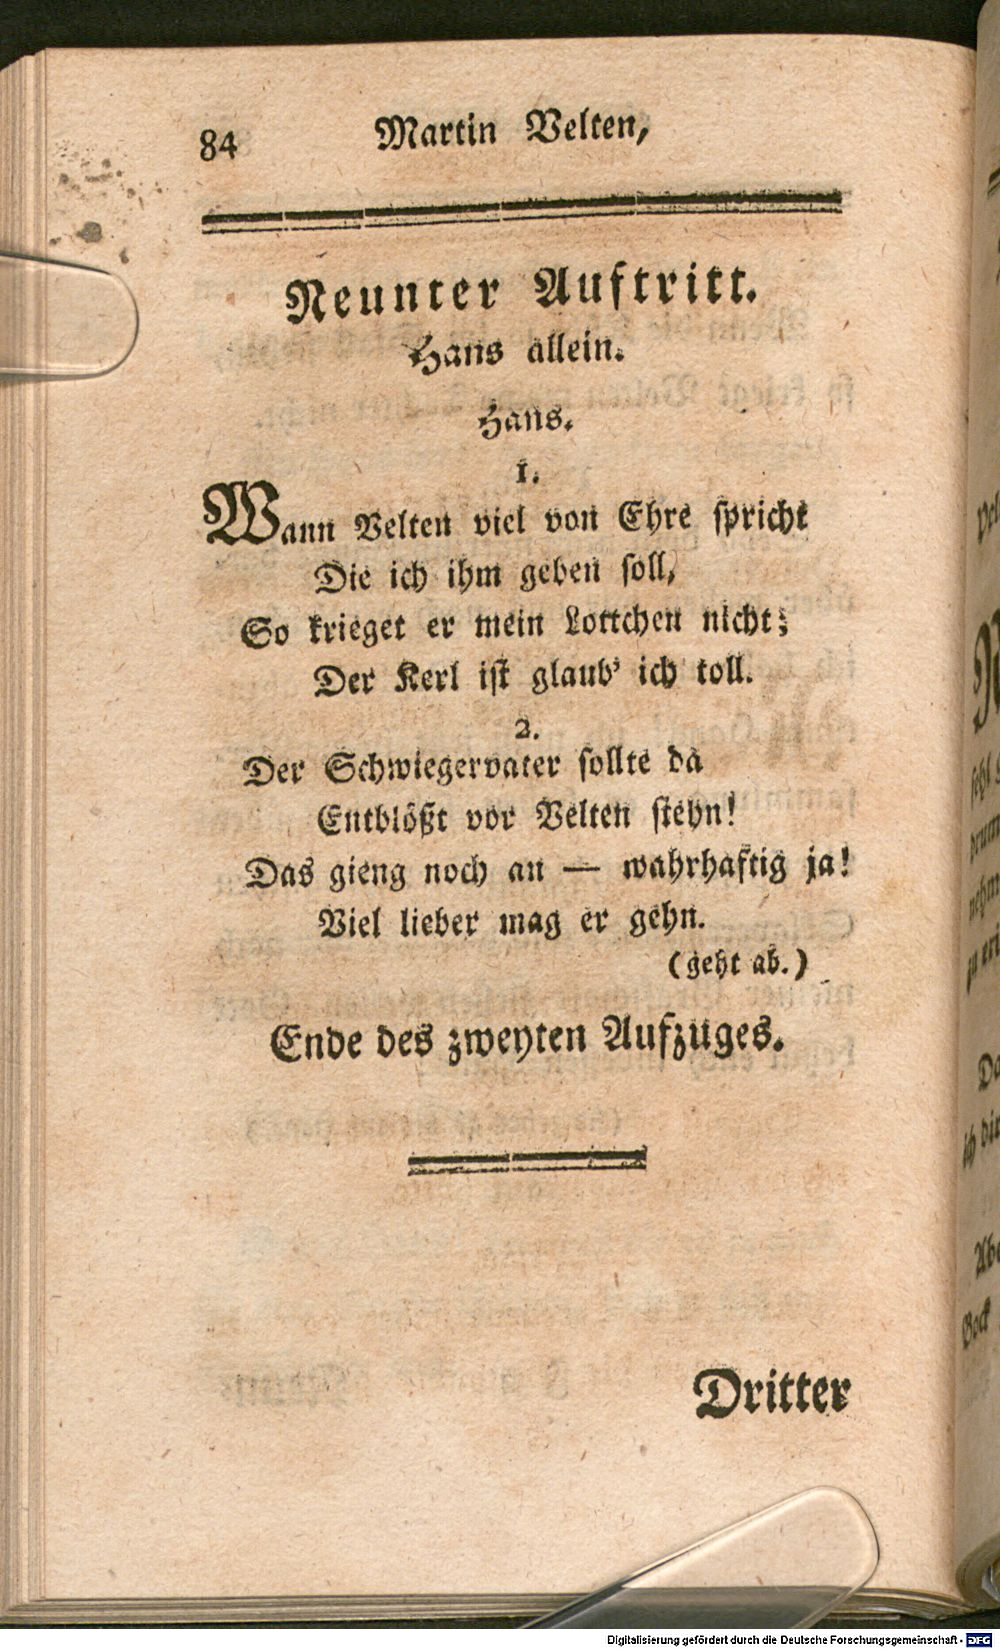 84
Martin Velten,
Neunter Auftritt.
Hans allein.
Hans.
1.
Wann Velten viel von Ehre spricht
Die ich ihm geben soll,
So krieget er mein Lottchen nicht;
Der Kerl ist glaub' ich toll.
2.
Der Schwiegervater sollte da
Entblößt vor Velten stehn!
Das gieng noch an — wahrhaftig ja!
Viel lieber mag er gehn.
(geht ab.)
Ende des zweyten Aufzuges.
Dritter
Digitalisierung gefördert durch die Deutsche Forschungsgemeinschaft - DFG